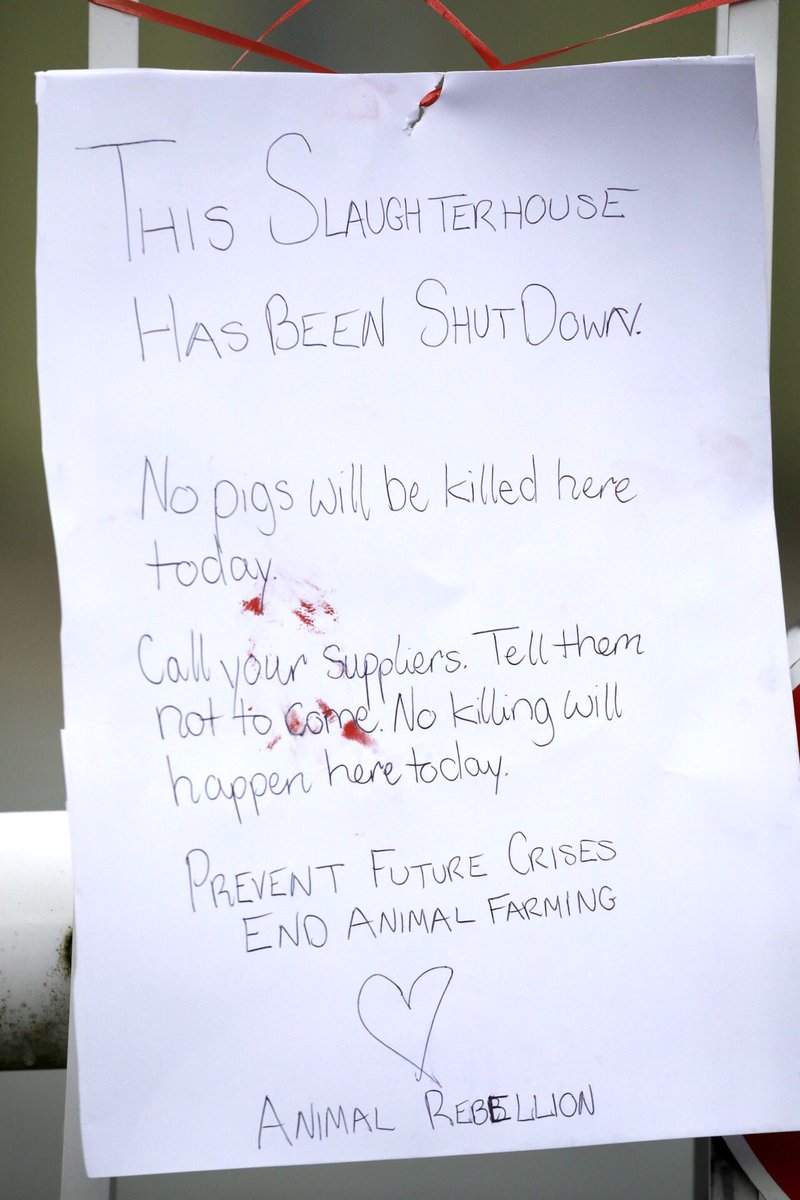 THIS SLAUGHTERHOUSE
HAS BEEN SHUT DOWN.
No pigs will be killed here
today.
Call your suppliers. Tell them
not to come. No killing will
happen here today.
PREVENT FUTURE CRISES
END ANIMAL FARMING
ANIMAL REBELLION